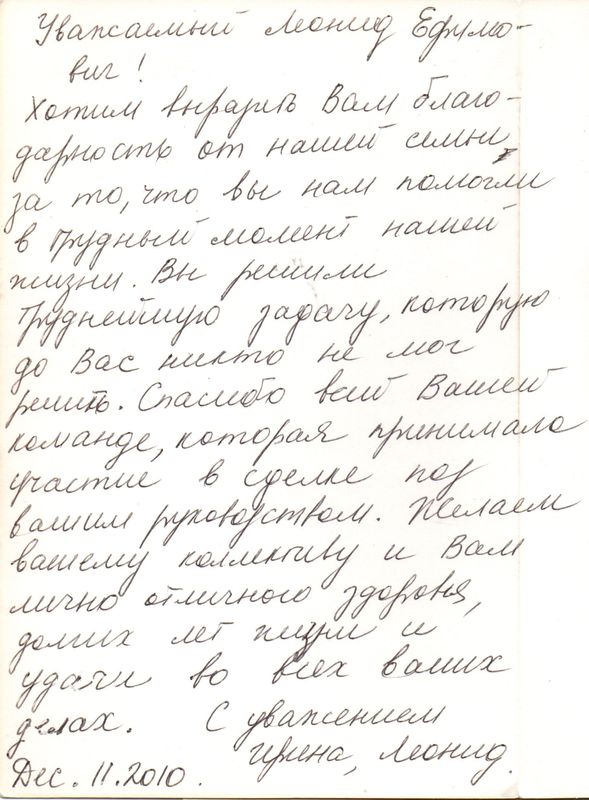 Уважаемый Леонид Ефимо-
вич!
Хотим выразить Вам благо-
дарность от нашей семьи
за то, что вы нам помогли
в трудный момент нашей
жизни. Вы решили
труднейшую задачу, которую
до Вас никто не мог
решить. Спасибо всей Вашей
команде, которая принимала
участие в сделке под
вашим руководством. Желаем
вашему коллективу и Вам
лично отличного здоровья,
долгих лет жизни и
удачи во всех ваших
делах. С уважением
Ирина, Леонид.
Dec. 11.2010.